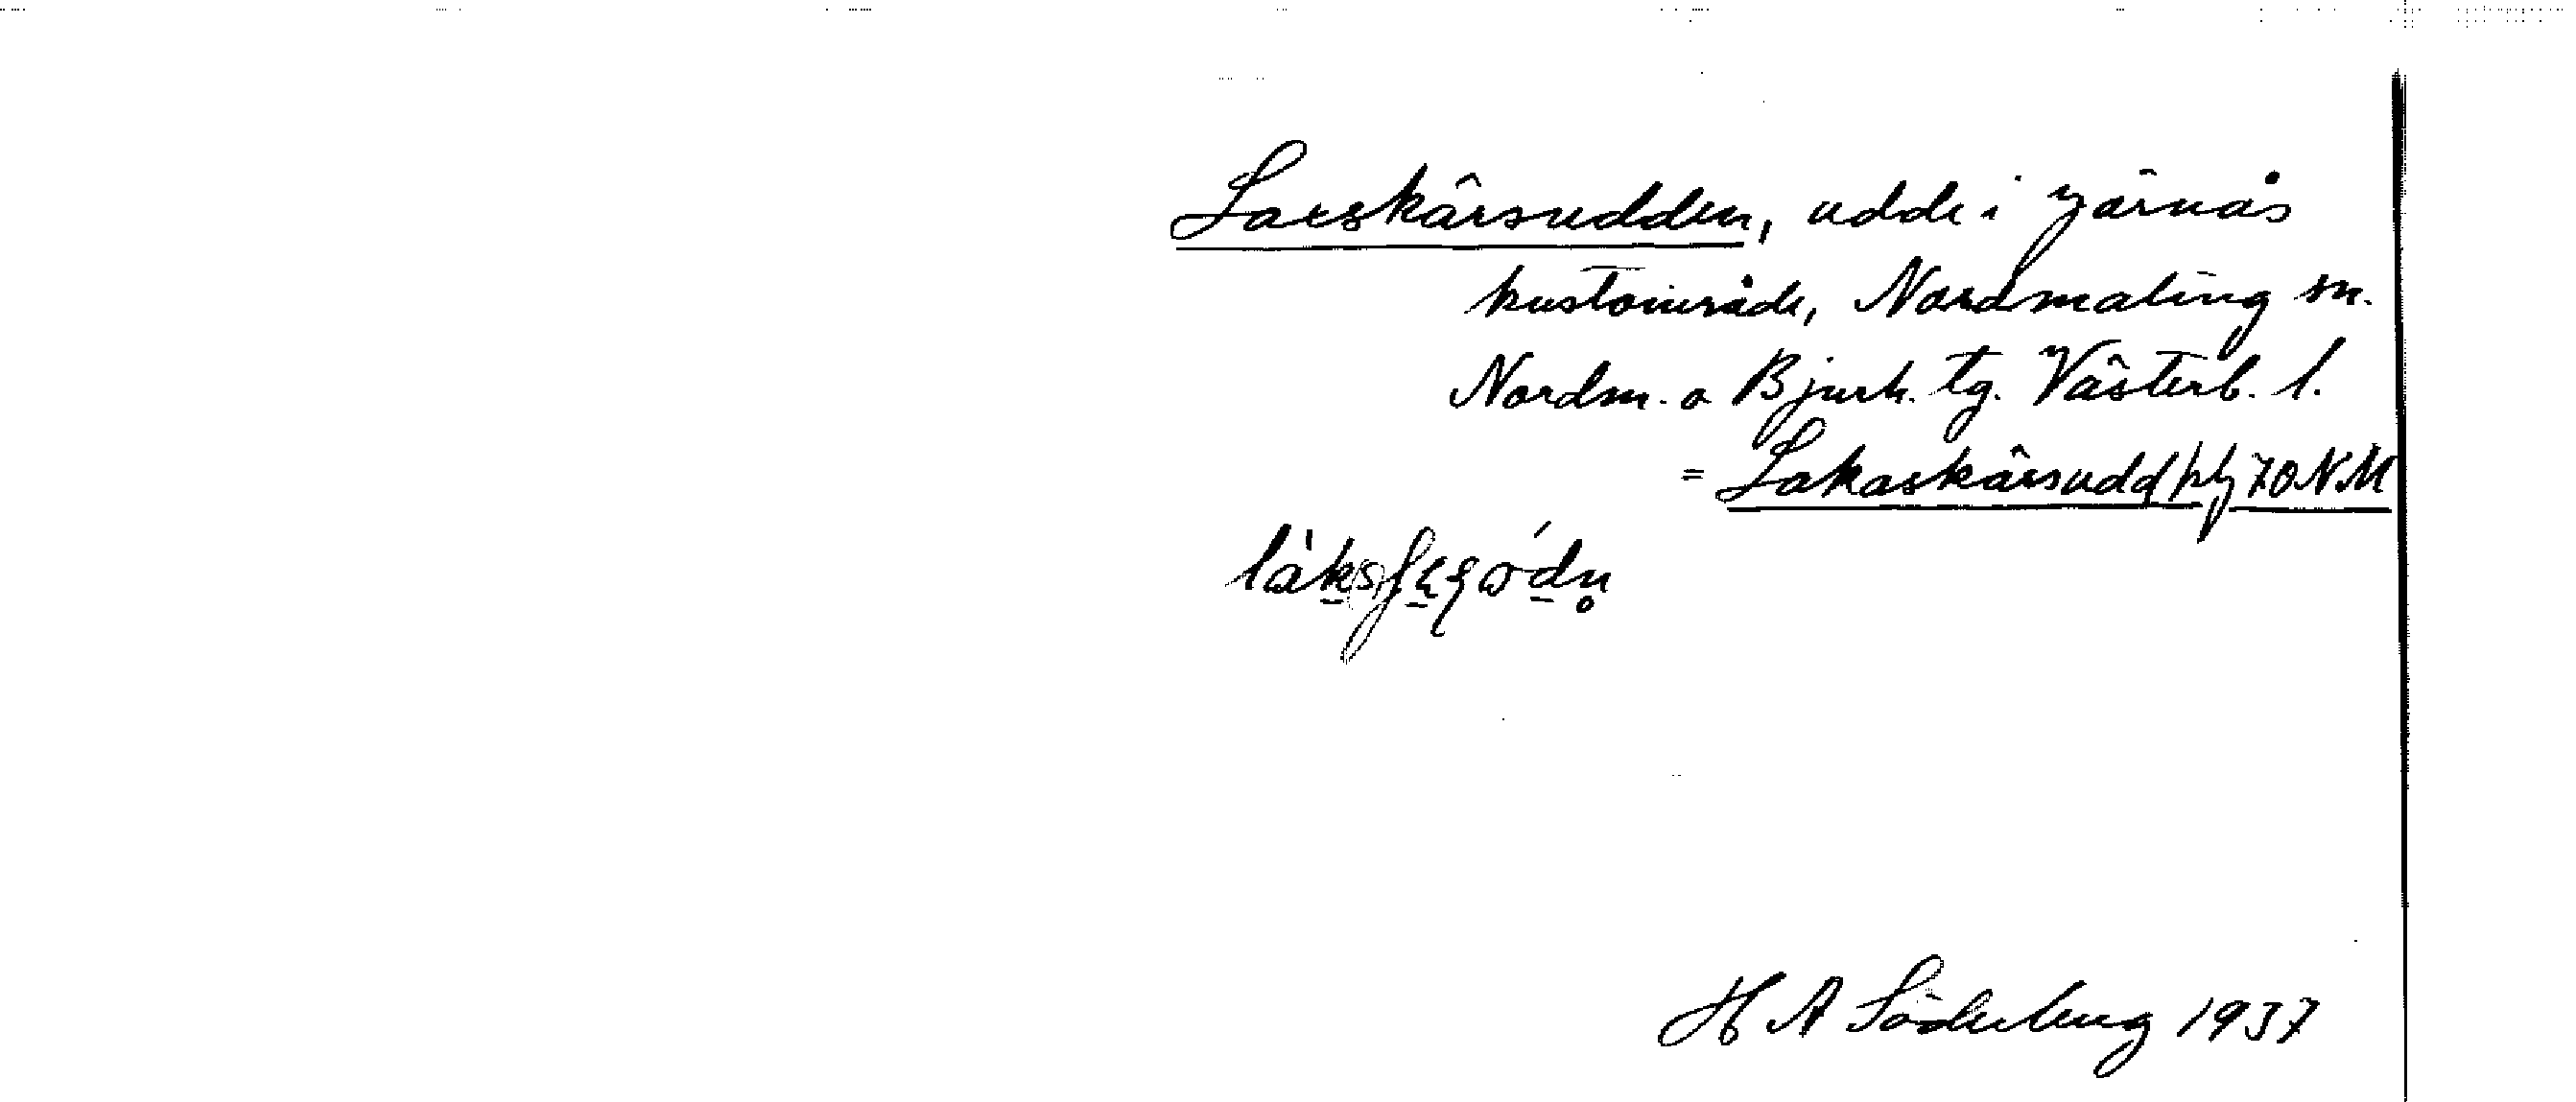 Laxskärsudden, udde i Järnäs
kustområde, Nordmaling sn.
Nordm. o Bjurh. tg. Västerb. l.
= Lakaskärsudd 70 NM
H A Söderberg 1937